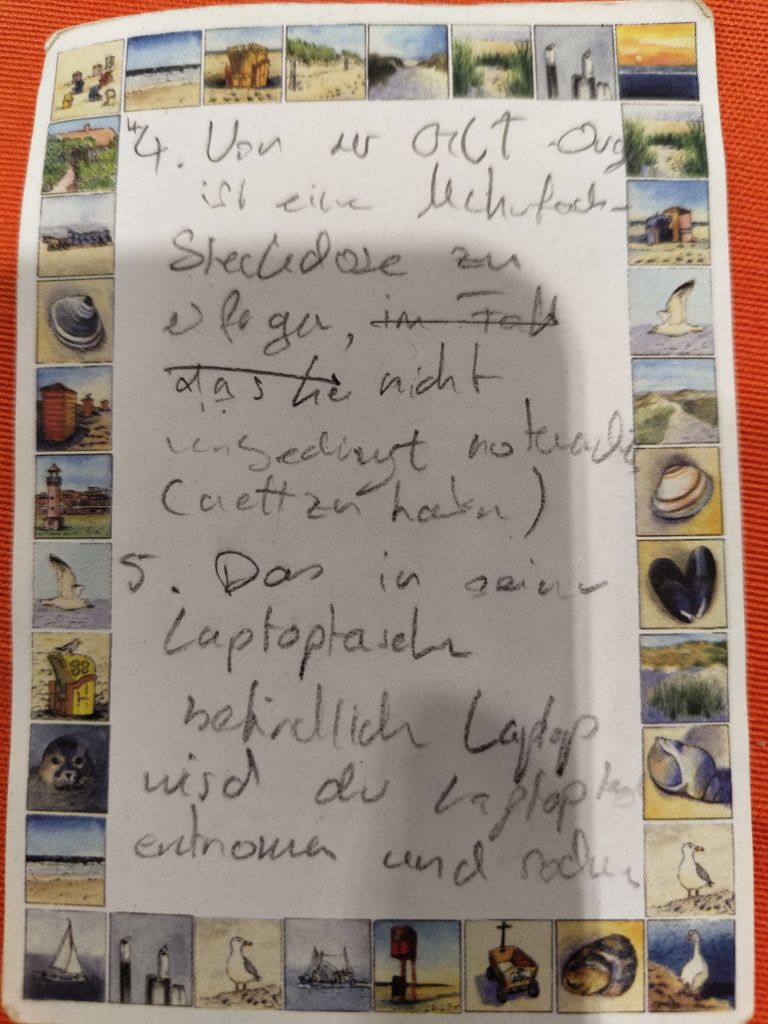 4. Von der OrLT-Org
ist eine Mehrfach-
Steckdose zu
erfragen, im Fall
das sie nicht
unbedingt
(aettzu haben)
5. Das in seiner
Laptoptasche
befindlich Laptop
wird der Laptopta
entnomen und